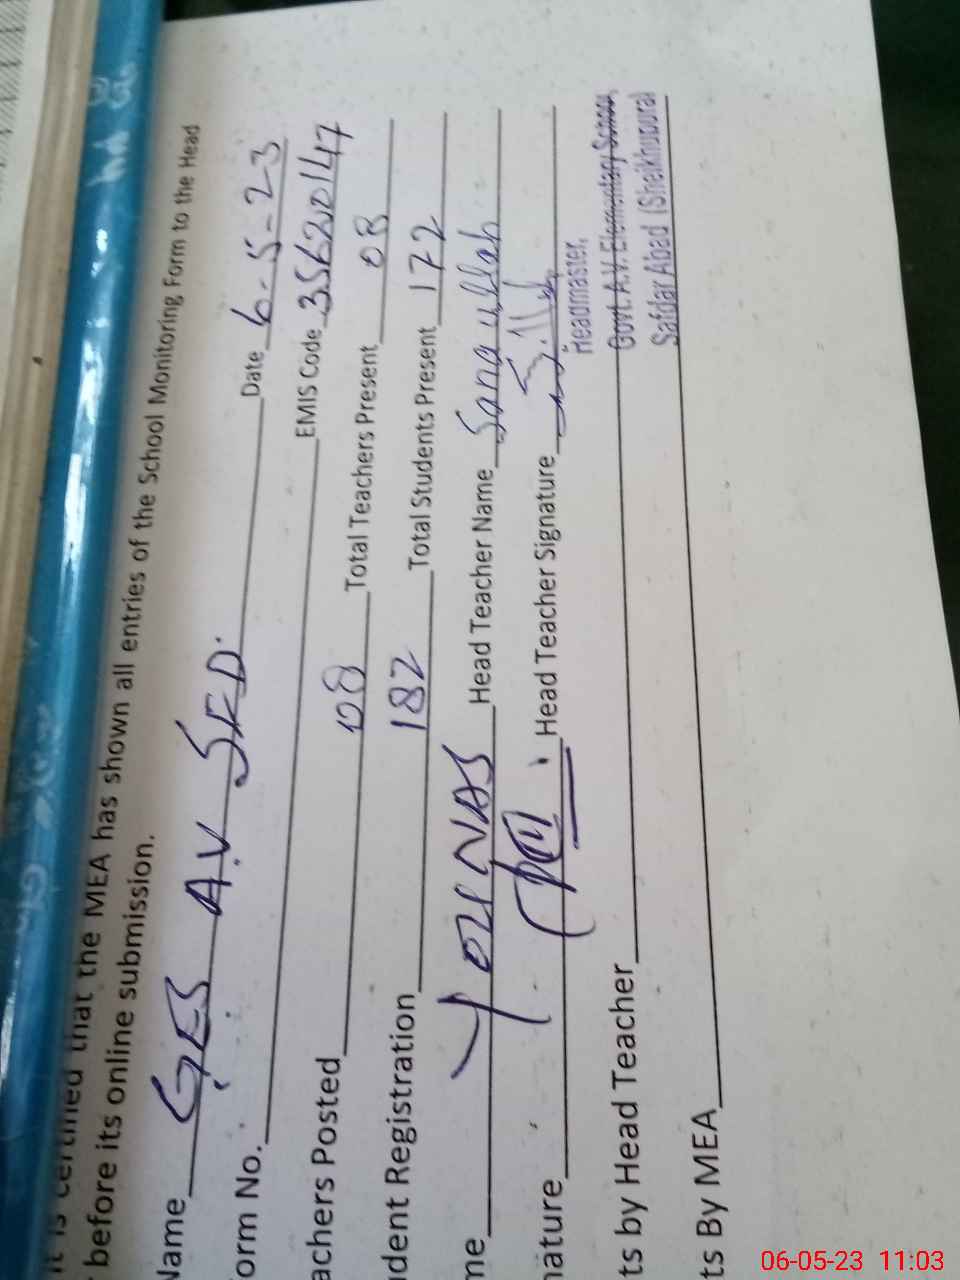 It is certified that the MEA has shown all entries of the School Monitoring Form to the Head
before its online submission.
Name GES A.V SFD. Date 6-5-23
Form No. EMIS Code 35620147
achers Posted 08 Total Teachers Present 08
udent Registration 182 Total Students Present 172
me YOUNAS Head Teacher Name Sana ullah
nature Head Teacher Signature
Headmaster,
ts by Head Teacher Govt. A.V. Elementary School,
Safdar Abad (Sheikhupura)
ts By MEA
06-05-23 11:03